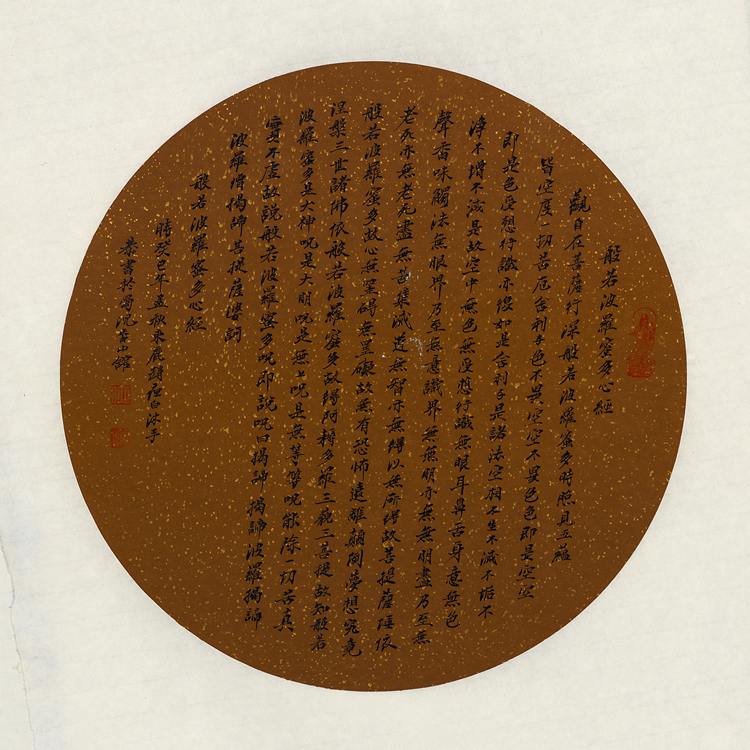 般若波羅蜜多心經
觀自在菩薩行深般若波羅蜜多時照見五蘊
皆空度一切苦厄舍利子色不異空空不異色色即是空空
即是色受想行識亦復如是舍利子是諸法空相不生不滅不垢不
淨不增不減是故空中無色無受想行識無眼耳鼻舌身意無色
聲香味觸法無眼界乃至無意識界無無明亦無無明盡乃至無
老死亦無老死盡無苦集滅道無智亦無得以無所得故菩提薩埵依
般若波羅蜜多故心無罣礙無罣礙故無有恐怖遠離顛倒夢想究竟
涅槃三世諸佛依般若波羅蜜多故得阿耨多羅三藐三菩提故知般若
波羅蜜多是大神咒是大明咒是無上咒是無等等咒能除一切苦真
實不虛故說般若波羅蜜多咒即說咒曰揭諦揭諦波羅揭諦
波羅僧揭諦菩提薩婆訶
般若波羅蜜多心經
時癸巳年孟秋朱庭沐手
恭書於蜀山館